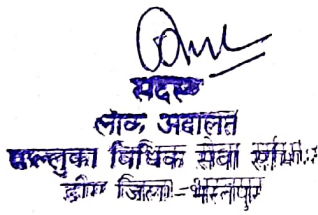 सदस्य
लोक अदालत
ताल्लुका विधिक सेवा समिति
डीग जिला-भरतपुर